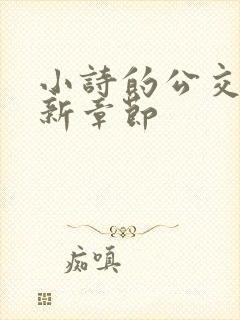 小詩的公交
新章節
痴嗔